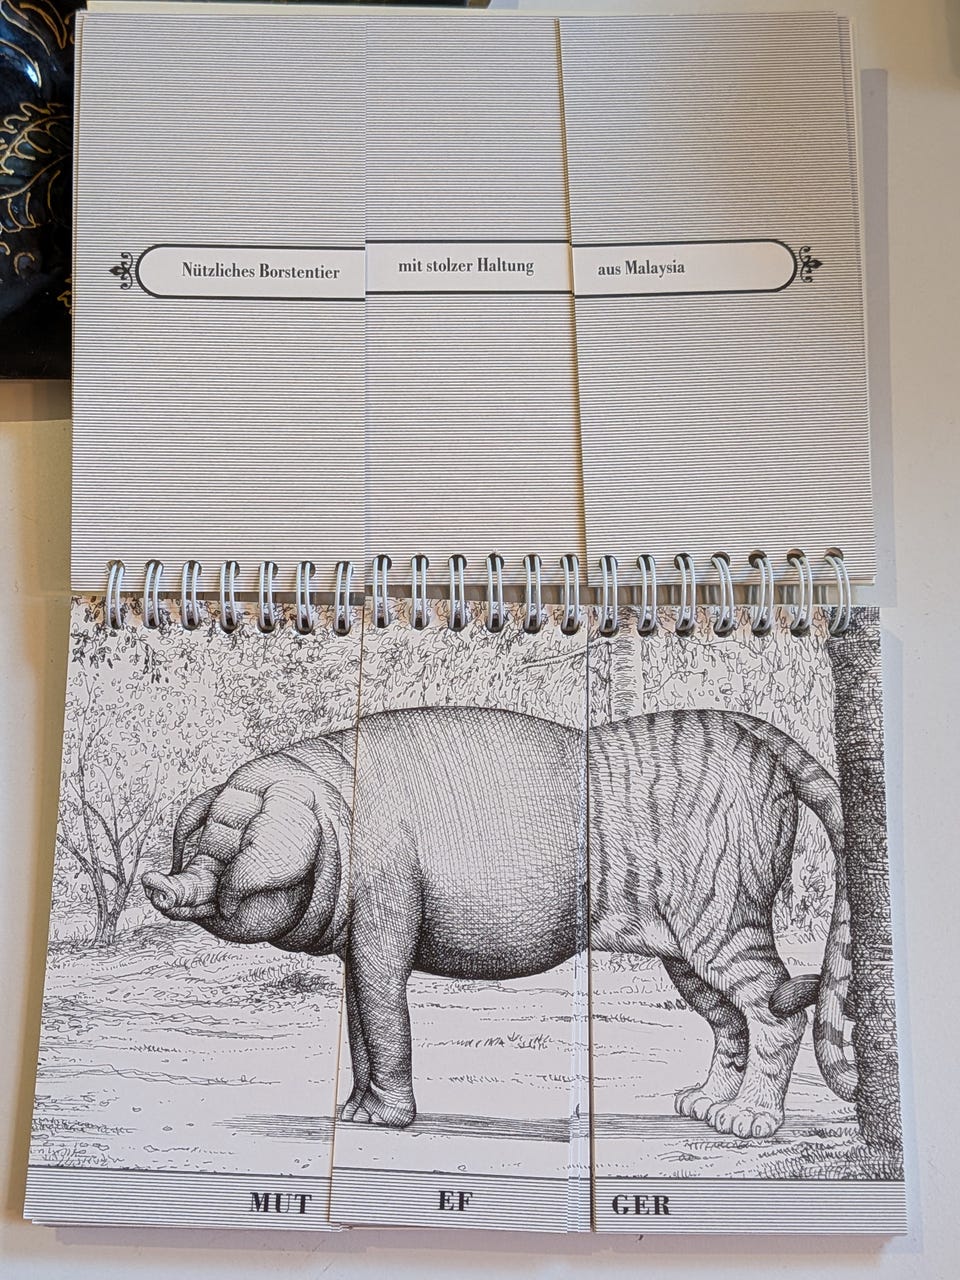 Nützliches Borstentier mit stolzer Haltung aus Malaysia
MUT EF GER